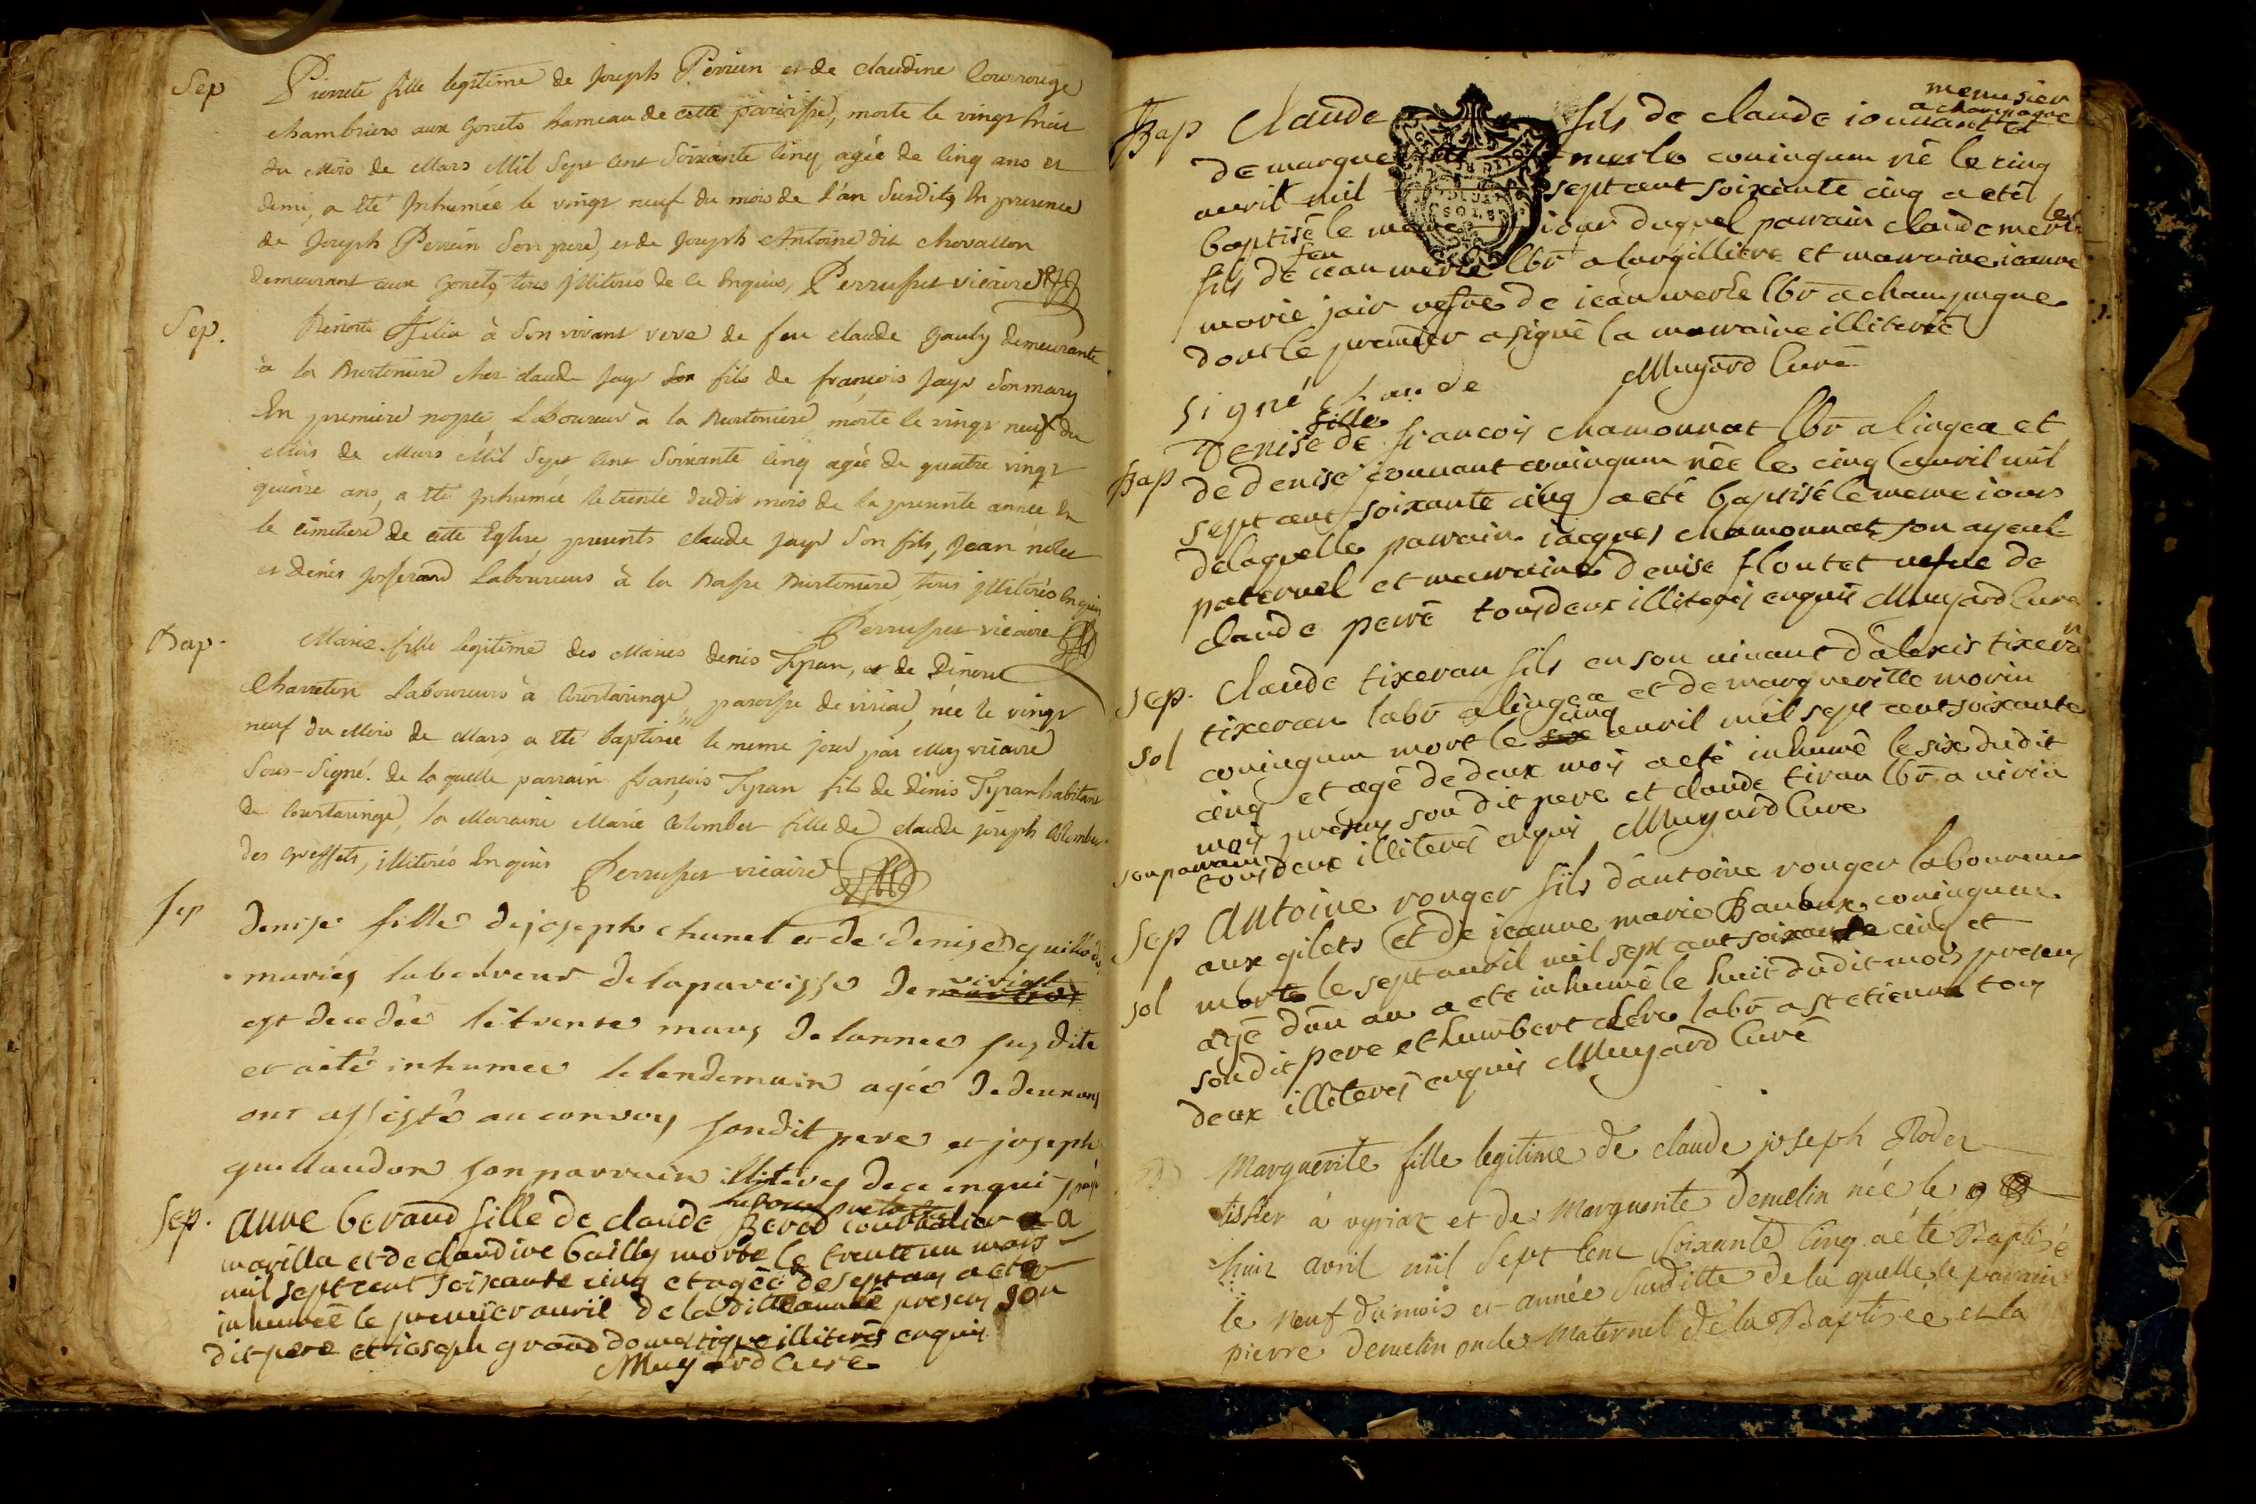 Sep
Pierrete fille legitime de Joseph Perrin et de claudine
chambriers aux Gonets hameau de cette paroisse, morte le vingt huit
du Mois de Mars Mil Sept Cent Soixante Cinq agée de Cinq ans et
demi, a été Inhumée le vingt neuf du mois de l'an Susdits En presence
de Joseph Perrin Son pere, et de Joseph Antoine dit chevallon
demeurant aux Gonets, tous Illiterés de ce Enquis, Perrusset vicaire
Sep.
à Son vivant veve de feu claude Gauly demeurante
à la Burtoniere chez claude Jayr Son fils de françois Jayr Son mary
En premiere nopce, Laboureur à la Burtoniere, morte le vingt neuf du
Mois de Mars Mil Sept Cent Soixante Cinq agée de quatre vingt
quinze ans, a été Inhumée le trente dudit mois de la presente année En
le cimetiere de cette Eglise presents claude Jayr Son fils, Jean
et Denis Josserand Laboureurs à la Basse Burtoniere, tous Illiterés Enquis
Perrusset vicaire
Bap.
Marie fille legitime des Mariés denis Tyran, et de
Charreton Laboureurs à Courtaringe, paroisse de viriat, née le vingt
neuf du Mois de Mars a été baptisée le meme jour par Moy vicaire
Sous-Signé. de la quelle parrain françois Tyran fils de Denis Tyran habitant
de Courtaringe, la Maraine Marie Colombet fille de claude joseph Colombet
des Greffets, illiterés Enquis Perrusset vicaire
Sep
denise fille de joseph chunet et de denise
mariés laboureur de la paroisse de viriat
est decedée le trente mars de lannee susdite
et aété inhumee le lendemain agée de deux ans
ont assisté au convoy sondit pere et joseph
guillaudon son parrain illiterés de ce enqui
Sep.
anne beraud fille de claude Berod a
marilla et de claudine bailly morte le trente un mars
mil sept cent soixante cinq et agée de sept ans a été
inhumée le premier avril de la ditte année presens son
dit pere et ioseph grand domestique illiterés enquis
Muyard Curé
Bap
claude fils de claude iouvant et menusier a champagne
de marguerite merle coniugum né le cinq
avril mil sept cent soixante cinq a eté
baptisé le meme iour duquel parrain claude merle
fils de feu iean merle lbr a largilliere et marraine ieanne
marie jair vefve de iean merle lbr a champagne
dont le premier a signé la marraine illiterée
signé claude Muyard Curé
Bap
Denise fille de francois chamonnat lbr a lingea et
de denise iouvant coniugum née le cinq avril mil
sept cent soixante cinq a eté baptisé le meme iour
de laquelle parrain iacques chamonnat son ayeul
paternel et marraine denise floutet vefve de
claude peiré tous deux illiterés enquis Muyard Curé
sep.
claude tixeran fils en son vivant dalexis tixeran
sol
tixeran labr a lingea et de margueritte morin
coniugum mort le cinq avril mil sept cent soixante
cinq et agé de deux mois a eté inhumé le six dudit
mois presens son dit pere et claude tiran lbr a viria
son parrain tous deux illiterés enquis Muyard Curé
sep
antoine rouger fils dantoine rouger laboureur
aux gilets et de ieanne marie coniugum
sol
morte le sept avril mil sept cent soixante cinq et
agé dun an a eté inhumé le huit dudit mois presens
sondit pere et humbert labr a st etienne tous
deux illiterés enquis Muyard Curé
Marguerite fille legitime de claude joseph Rodet
tissier à vyriat et de Marguerite demelin née le
huit avril mil Sept Cent Soixante Cinq a été Baptisé
le neuf du mois et année Susditte de la quelle le parrain
pierre demelin oncle Maternel de la Baptisée, et la